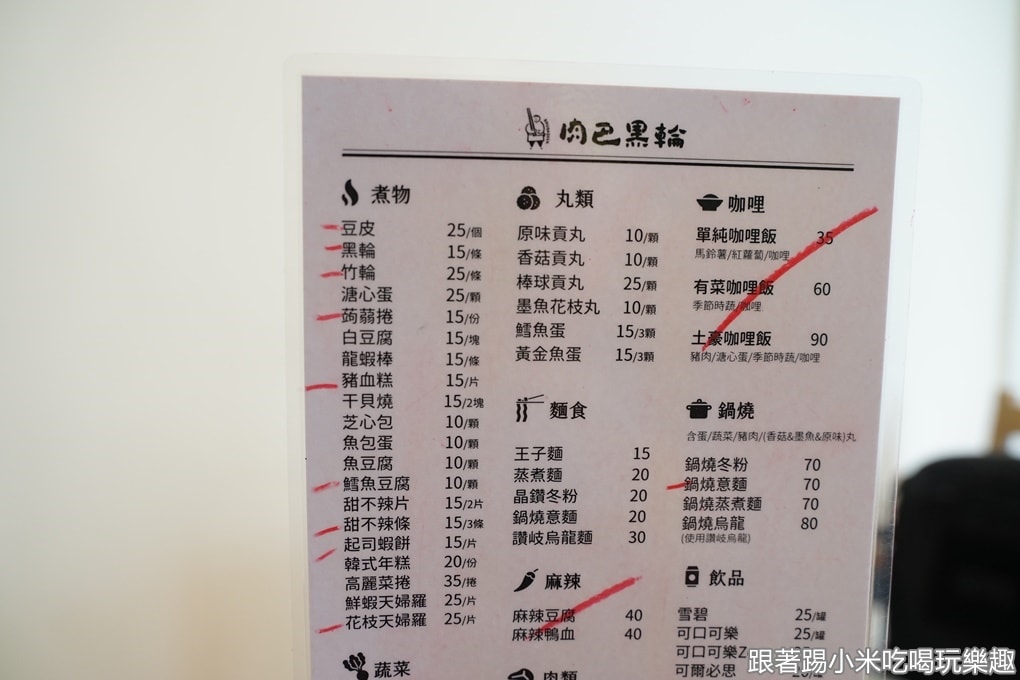 肉巴黑輪
煮物
豆皮 25/個
黑輪 15/條
竹輪 25/條
溏心蛋 25/顆
蒟蒻捲 15/份
白豆腐 15/塊
龍蝦棒 15/條
豬血糕 15/片
干貝燒 15/2塊
芝心包 10/顆
魚包蛋 10/顆
魚豆腐 10/顆
鱈魚豆腐 10/顆
甜不辣片 15/2片
甜不辣條 15/3條
起司蝦餅 15/片
韓式年糕 20/份
高麗菜捲 35/捲
鮮蝦天婦羅 25/片
花枝天婦羅 25/片
蔬菜
丸類
原味貢丸 10/顆
香菇貢丸 10/顆
棒球貢丸 25/顆
墨魚花枝丸 10/顆
鱈魚蛋 15/3顆
黃金魚蛋 15/3顆
麵食
王子麵 15
蒸煮麵 20
晶鑽冬粉 20
鍋燒意麵 20
讚岐烏龍麵 30
麻辣
麻辣豆腐 40
麻辣鴨血 40
肉類
咖哩
單純咖哩飯 35
馬鈴薯/紅蘿蔔/咖哩
有菜咖哩飯 60
季節時蔬/咖哩
土豪咖哩飯 90
豬肉/溏心蛋/季節時蔬/咖哩
鍋燒
含蛋/蔬菜/豬肉/(香菇&墨魚&原味)丸
鍋燒冬粉 70
鍋燒意麵 70
鍋燒蒸煮麵 70
鍋燒烏龍 80
(使用讚岐烏龍)
飲品
雪碧 25/罐
可口可樂 25/罐
可口可樂Z
可爾必思
跟著踢小米吃喝玩樂趣